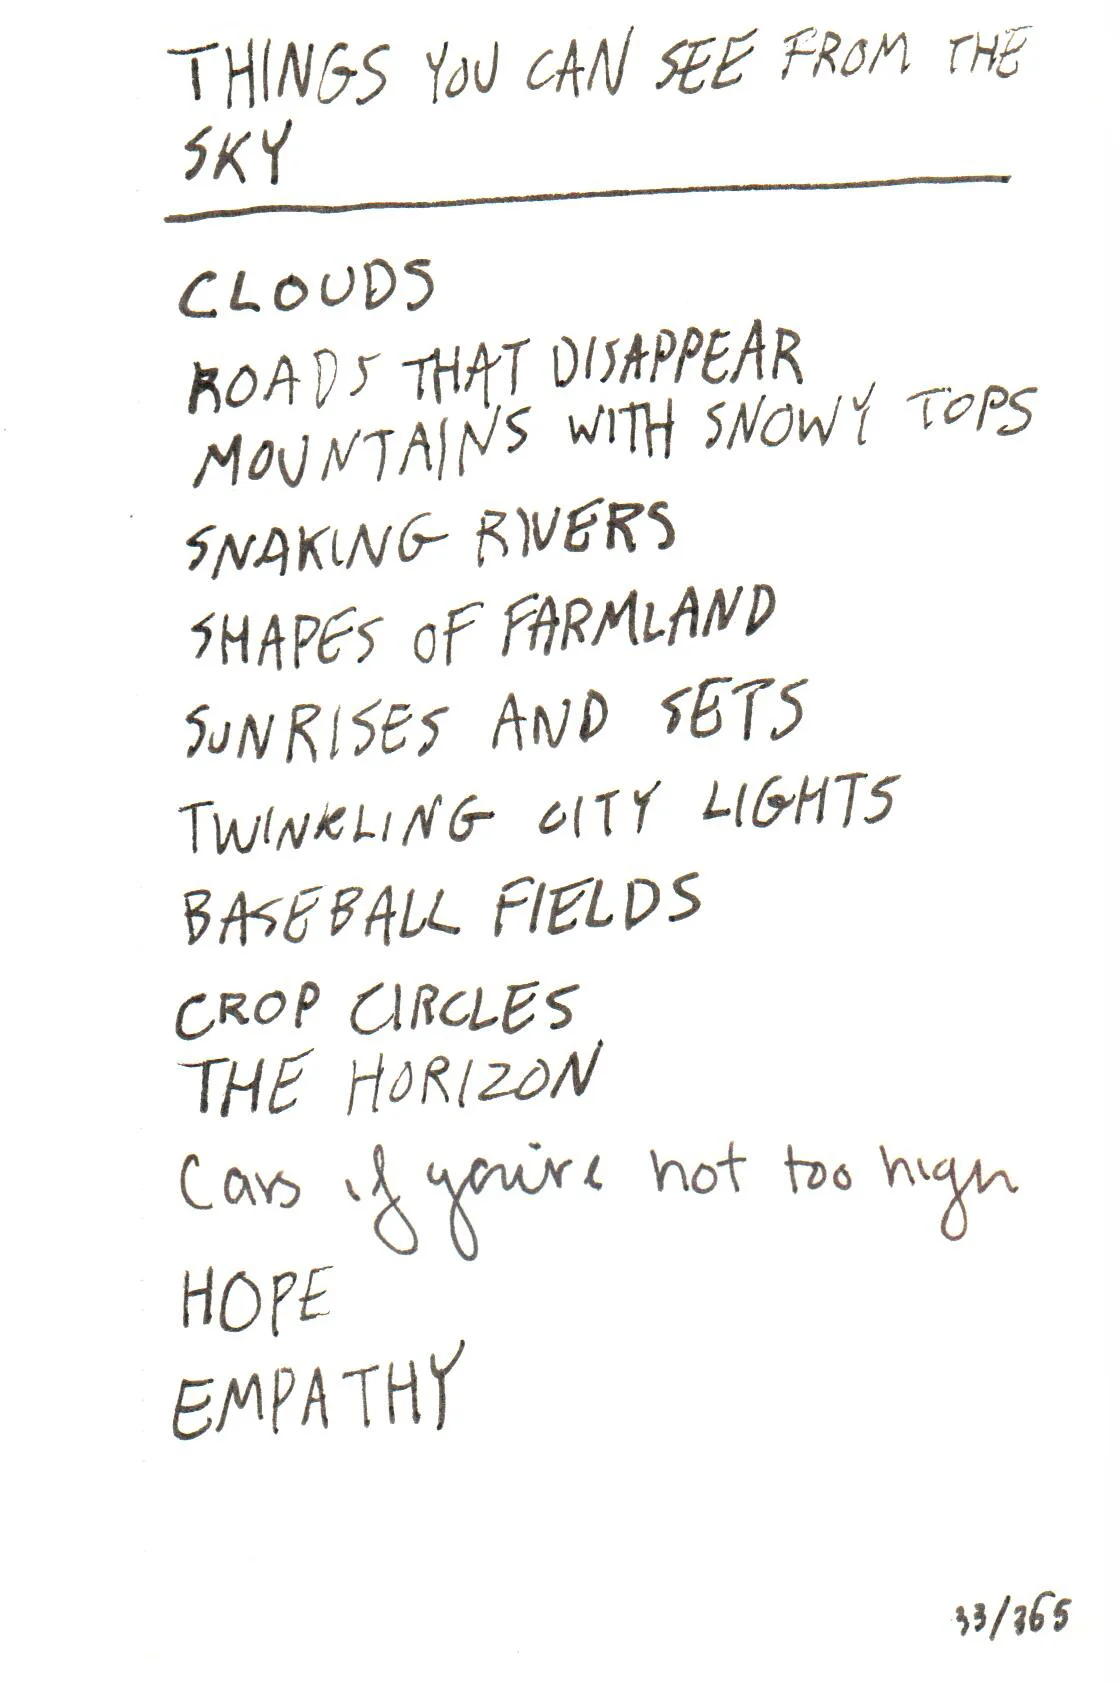 THINGS YOU CAN SEE FROM THE
SKY
CLOUDS
ROADS THAT DISAPPEAR
MOUNTAINS WITH SNOWY TOPS
SNAKING RIVERS
SHAPES OF FARMLAND
SUNRISES AND SETS
TWINKLING CITY LIGHTS
BASEBALL FIELDS
CROP CIRCLES
THE HORIZON
Cars if you're not too high
HOPE
EMPATHY
33/365